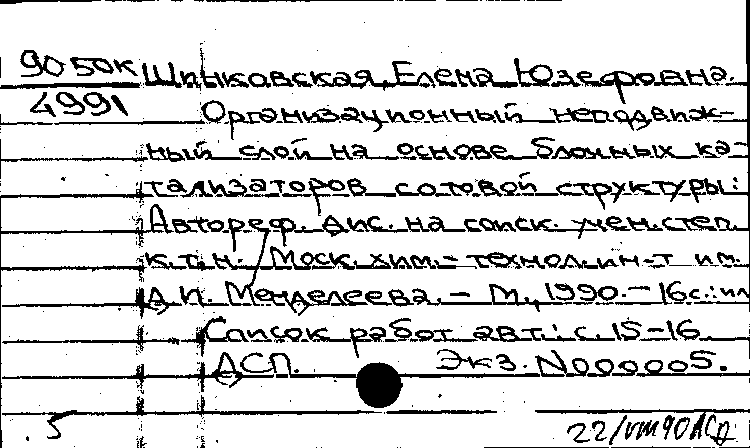 9050к Шпыковская, Елена Юзефовна.
4991 Организационный неподвиж-
ный слой на основе блочных ка-
тализаторов сотовой структуры:
Автореф. дис. на соиск. учен. степ.
к.т.н. / Моск. хим.-технол. ин-т им.
Д.И. Менделеева. - М., 1990. - 16с.: ил
Список работ авт.: с. 15-16
ДСП. Экз. N000005.
5